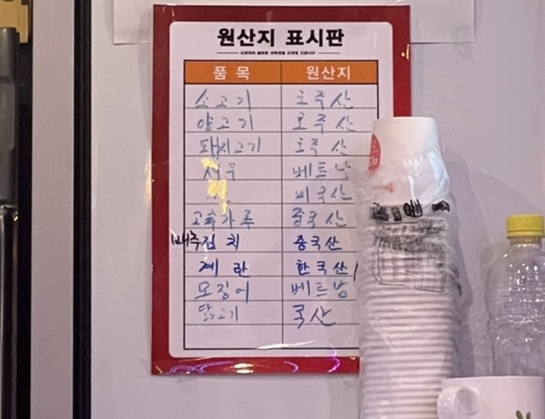 원산지 표시판
품 목 원산지
소고기 호주산
양고기 호주산
돼지고기 호주산
새우 베트남
미국산
고추가루 중국산
배추김치 중국산
계란 한국산
오징어 베트남
닭고기 국산